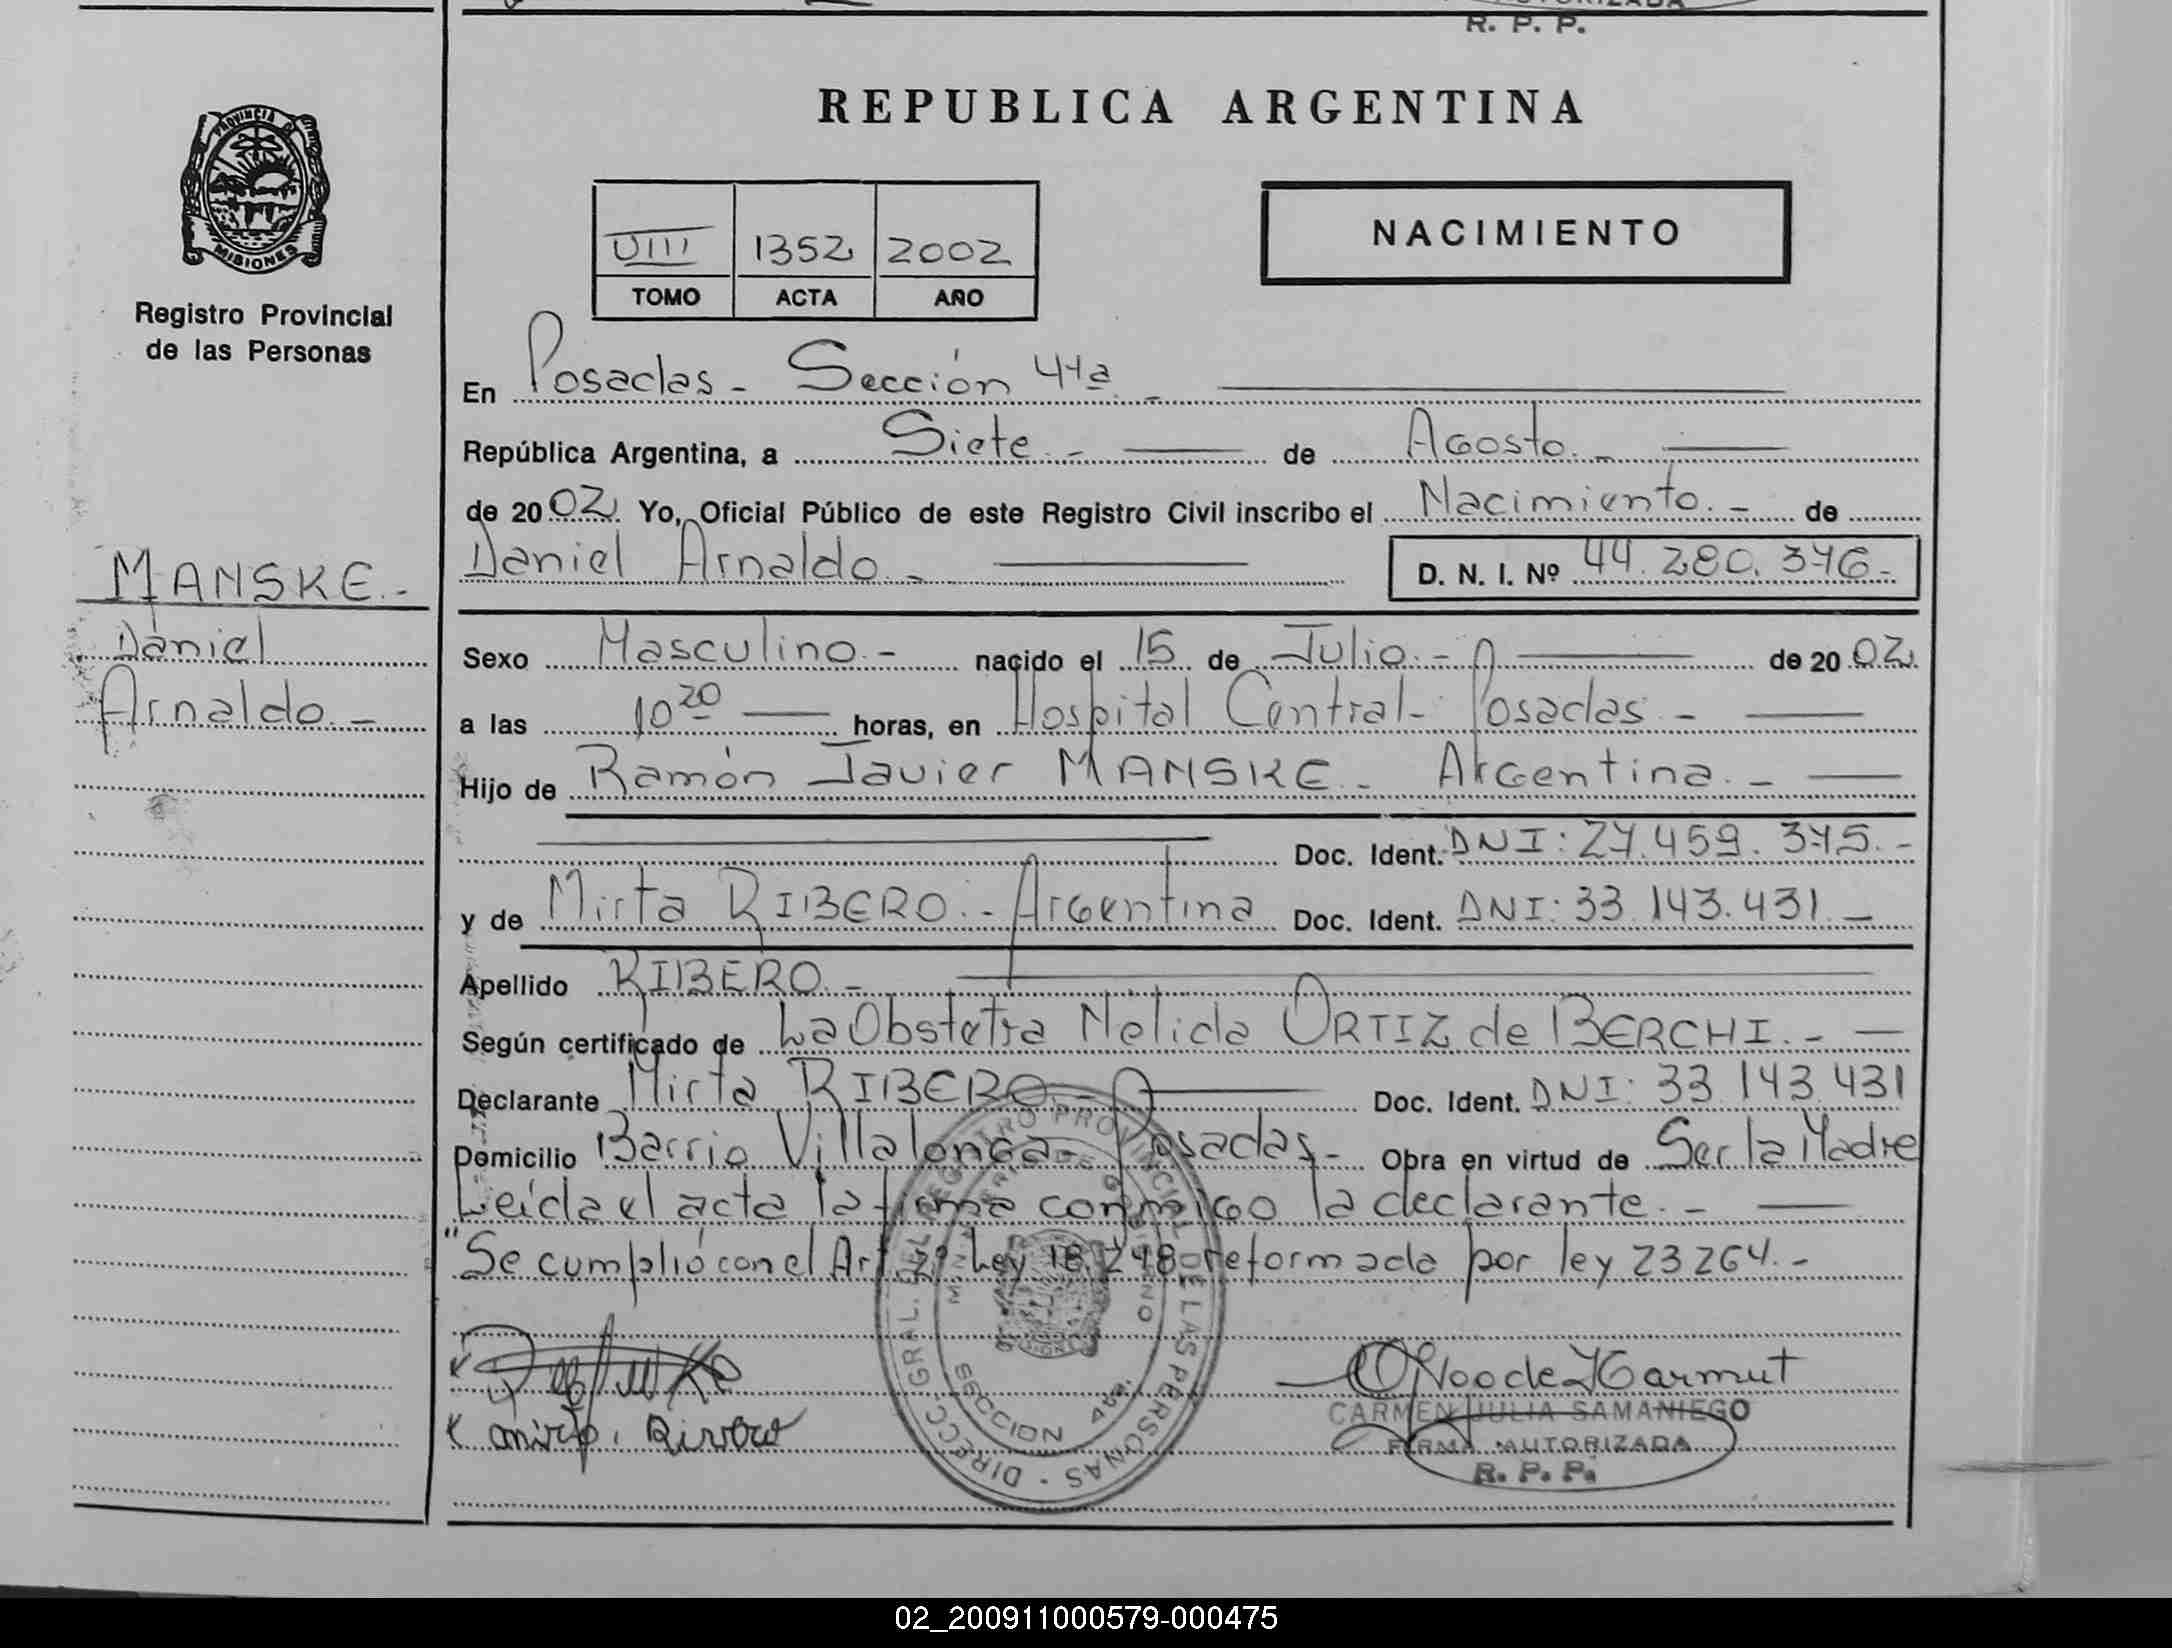 R. P. P.
REPUBLICA ARGENTINA
PROVINCIA D
MISIONES
Registro Provincial
de las Personas
VIII 1352 2002
TOMO ACTA AÑO
NACIMIENTO
En Posadas - Sección 4ta.-
República Argentina, a Siete.- de Agosto.-
de 2002 Yo, Oficial Público de este Registro Civil inscribo el Nacimiento.- de
Daniel Arnaldo.- D. N. I. Nº 44.280.376.-
MANSKE.-
Daniel
Arnaldo.-
Sexo Masculino.- nacido el 15 de Julio.- de 2002.
a las 10 20 horas, en Hospital Central- Posadas.-
Hijo de Ramón Javier MANSKE.- Argentina.-
Doc. Ident. DNI: 27.459.375.-
y de Mirta RIBERO.- Argentina Doc. Ident. DNI: 33.143.431.-
Apellido RIBERO.-
Según certificado de La Obstetra Nelida ORTIZ de BERCHI.-
Declarante Mirta RIBERO.- Doc. Ident. DNI: 33.143.431
Domicilio Barrio Villalonga- Posadas- Obra en virtud de Ser la Madre
Leída el acta la firma conmigo la declarante.-
"Se cumplió con el Art. 2º Ley 18.248 reformada por ley 23264.-
DIRECC. GRAL. DEL REGISTRO PROVINCIAL DE LAS PERSONAS
MINISTERIO DE GOBIERNO
SECCION 4ta.
CARMEN JULIA SAMANIEGO
FIRMA AUTORIZADA
R. P. P.
02_200911000579-000475